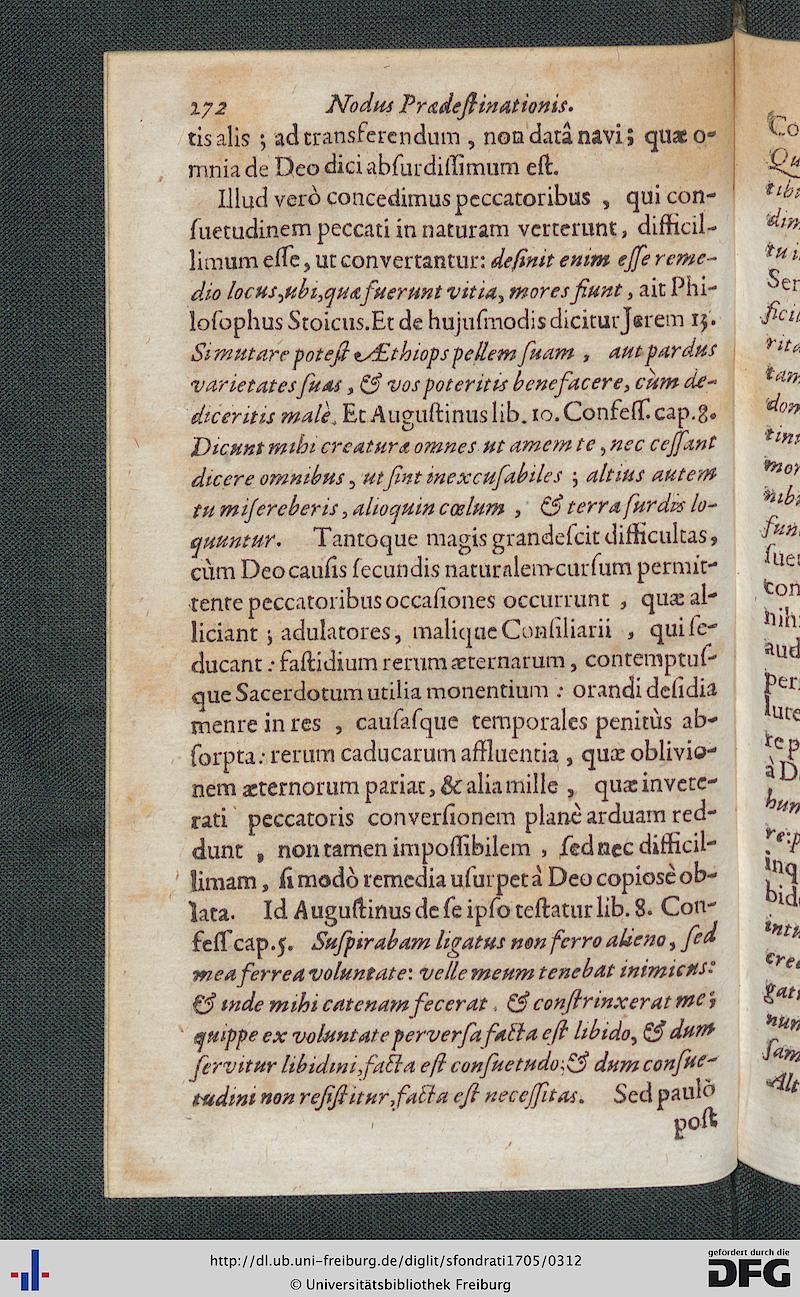 272 Nodus Prædeſtinationis.
tis alis ; ad transferendum , non datâ navi ; quæ o-
mnia de Deo dici abſurdiſſimum eſt.
Illud verò concedimus peccatoribus , qui con-
ſuetudinem peccati in naturam verterunt, difficil-
limum eſſe, ut convertantur: deſinit enim eſſe reme-
dio locus, ubi, quæ fuerunt vitia, mores fiunt, ait Phi-
loſophus Stoicus. Et de hujuſmodis dicitur Jerem 13.
Si mutare poteſt Æthiops pellem ſuam , aut pardus
varietates ſuas, & vos poteritis benefacere, cùm de-
diceritis malè. Et Auguſtinus lib. 10. Confeſſ. cap. 8.
Dicunt mihi creaturæ omnes ut amem te, nec ceſſant
dicere omnibus, ut ſint inexcuſabiles ; altius autem
tu miſereberis, alioquin cœlum , & terra ſurdis lo-
quuntur. Tantoque magis grandeſcit difficultas,
cùm Deo cauſis ſecundis naturalem curſum permit-
tente peccatoribus occaſiones occurrunt , quæ al-
liciant ; adulatores, malique Conſiliarii , qui ſe-
ducant : faſtidium rerum æternarum, contemptuſ-
que Sacerdotum utilia monentium : orandi deſidia
menre in res , cauſaſque temporales penitùs ab-
ſorpta : rerum caducarum affluentia , quæ oblivio-
nem æternorum pariat, & alia mille , quæ invete-
rati peccatoris converſionem planè arduam red-
dunt , non tamen impoſſibilem , ſed nec difficil-
limam, ſi modò remedia uſurpet à Deo copiosè ob-
lata. Id Auguſtinus de ſe ipſo teſtatur lib. 8. Con-
feſſ cap. 5. Suſpirabam ligatus non ferro alieno, ſed
mea ferrea voluntate: velle meum tenebat inimicus:
& inde mihi catenam fecerat, & conſtrinxerat me;
quippe ex voluntate perverſa facta eſt libido, & dum
ſervitur libidini, facta eſt conſuetudo; & dum conſue-
tudini non reſiſtitur, facta eſt neceſſitas. Sed paulò
poſt
Co
Qu
tibi
dim
tu i
Ser
ficil
rita
tam
don
tint
mor
nibi
fun
ſuet
con
nih
aud
per
lute
te p
à D
hun
re:p
inq
bid
intu
cre
gati
nun
ſam
Alt
http://dl.ub.uni-freiburg.de/diglit/sfondrati1705/0312
© Universitätsbibliothek Freiburg
gefördert durch die
DFG